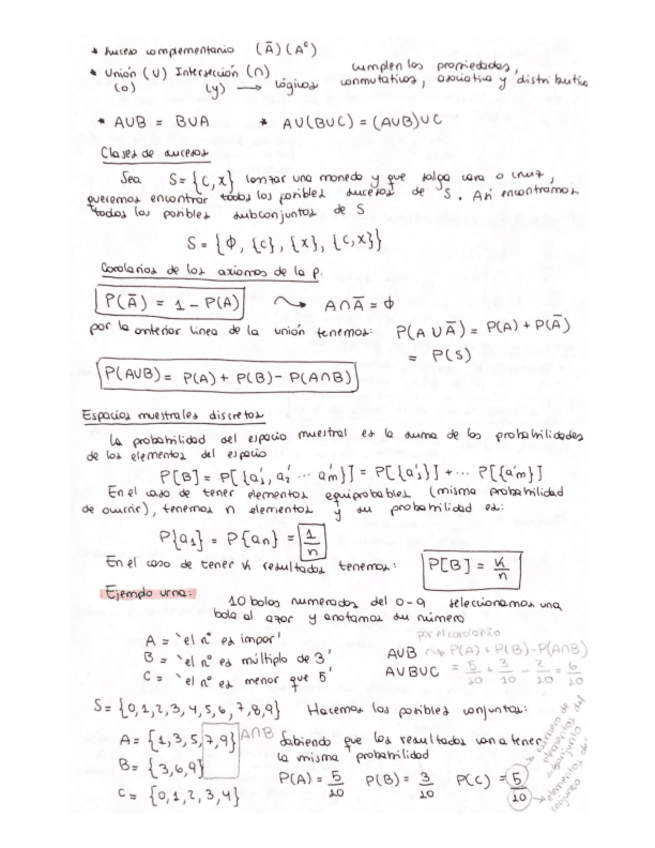 * suceso complementario (Ā) (Aᶜ)
* Unión (U) Intersección (∩) cumplen las propiedades,
(o) (y) → lógicos conmutativas, asociativa y distributiva
* AUB = BUA * AU(BUC) = (AUB)UC
Clases de sucesos
Sea S = {c, x} lanzar una moneda y que salga cara o cruz,
queremos encontrar todos los posibles sucesos de S. Así encontramos
todos los posibles subconjuntos de S
S = {Φ, {c}, {x}, {c,x}}
Corolarios de los axiomas de la p.
P(Ā) = 1 - P(A) ⤳ A∩Ā = Φ
por la anterior línea de la unión tenemos: P(A U Ā) = P(A) + P(Ā)
= P(S)
P(AUB) = P(A) + P(B) - P(A∩B)
Espacios muestrales discretos
La probabilidad del espacio muestral es la suma de las probabilidades
de los elementos del espacio
P[B] = P[{a'₁, a'₂ ... a'm}] = P[{a'₁}] + ... P[{a'm}]
En el caso de tener elementos equiprobables (misma probabilidad
de ocurrir), tenemos n elementos y su probabilidad es:
P{a₁} = P{an} = 1/n
En el caso de tener K resultados tenemos: P[B] = K/n
Ejemplo urna:
10 bolas numeradas del 0-9 seleccionamos una
bola al azar y anotamos su número
por el corolario
A = 'el nº es impar' AUB ⤳ P(A) + P(B) - P(A∩B)
B = 'el nº es múltiplo de 3' AUBUC = 5/10 + 3/10 - 2/10 = 6/10
C = 'el nº es menor que 5'
S = {0,1,2,3,4,5,6,7,8,9} Hacemos los posibles conjuntos:
A = {1,3,5,7,9} A∩B Sabiendo que los resultados van a tener
B = {3,6,9} la misma probabilidad
C = {0,1,2,3,4} P(A) = 5/10 P(B) = 3/10 P(C) = 5/10
número de
elementos del
subconjunto
elementos del
conjunto